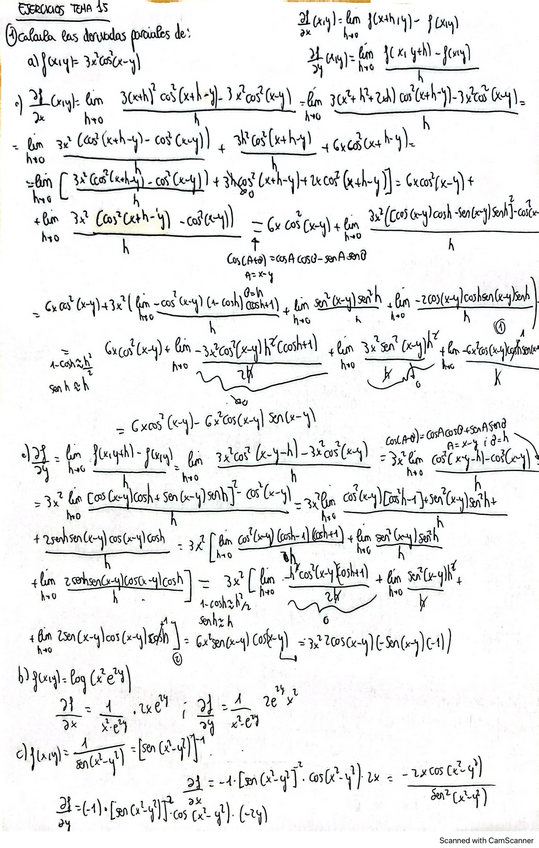 EJERCICIOS TEMA 15
① Calcula las derivadas parciales de:
∂f/∂x (x,y) = lim h→0 f(x+h,y) - f(x,y) / h
a) f(x,y) = 3x² cos²(x-y)
∂f/∂y (x,y) = lim h→0 f(x,y+h) - f(x,y) / h
•) ∂f/∂x (x,y) = lim h→0 3(x+h)² cos²(x+h-y) - 3x² cos²(x-y) / h = lim h→0 3(x²+h²+2xh) cos²(x+h-y) - 3x² cos²(x-y) / h =
= lim h→0 3x² (cos²(x+h-y) - cos²(x-y)) / h + 3h² cos²(x+h-y) / h + 6x cos²(x+h-y) =
= lim h→0 [ 3x² (cos²(x+h-y) - cos²(x-y)) / h + 3h cos²(x+h-y) + 2x cos²(x+h-y) ] = 6x cos²(x-y) +
+ lim h→0 3x² (cos²(x+h-y) - cos²(x-y)) / h = 6x cos²(x-y) + lim h→0 3x² ([cos(x-y)cosh - sen(x-y)senh]² - cos²(x- / h
cos(A+θ) = cosA cosθ - senA senθ
A = x-y
θ = h
= 6x cos²(x-y) + 3x² ( lim h→0 -cos²(x-y) (1-cosh)(cosh+1) / h + lim h→0 sen²(x-y) sen²h / h + lim h→0 -2cos(x-y)cosh sen(x-y)senh / h
= 6x cos²(x-y) + lim h→0 -3x² cos²(x-y) h² (cosh+1) / 2h + lim h→0 3x² sen²(x-y) h² / h + lim h→0 -6x² cos(x-y)
1-cosh ≈ h²/2
senh ≈ h
= 6x cos²(x-y) - 6x² cos(x-y) sen(x-y)
cos(A-θ) = cosA cosθ + senA senθ
A = x-y ; θ = h
•) ∂f/∂y = lim h→0 f(x,y+h) - f(x,y) / h = lim h→0 3x² cos²(x-y-h) - 3x² cos²(x-y) / h = 3x² lim h→0 cos²(x-y-h) - cos²(x-y) / h
= 3x² lim h→0 [cos(x-y)cosh + sen(x-y)senh]² - cos²(x-y) / h = 3x² lim h→0 cos²(x-y)[cos²h-1] + sen²(x-y)sen²h +
+ 2senh sen(x-y) cos(x-y) cosh / h = 3x² [ lim h→0 cos²(x-y)(cosh-1)(cosh+1) / h + lim h→0 sen²(x-y) sen²h / h
+ lim h→0 2senh sen(x-y) cos(x-y) cosh / h ] = 3x² [ lim h→0 -h² cos²(x-y)(cosh+1) / 2h + lim h→0 sen²(x-y) h² / h +
1-cosh ≈ h²/2
senh ≈ h
+ lim h→0 2sen(x-y) cos(x-y) cosh ] = 6x² sen(x-y) cos(x-y) = 3x² 2cos(x-y) (-sen(x-y)(-1))
b) f(x,y) = log(x² e^{2y})
∂f/∂x = 1/(x²·e^{2y}) · 2x e^{2y} ; ∂f/∂y = 1/(x²·e^{2y}) 2e^{2y} x²
c) f(x,y) = 1/sen(x²-y²) = [sen(x²-y²)]⁻¹
∂f/∂x = -1·[sen(x²-y²)]⁻² · cos(x²-y²) · 2x = -2x cos(x²-y²) / sen²(x²-y²)
∂f/∂y = (-1)·[sen(x²-y²)]⁻² · cos(x²-y²) · (-2y)
Scanned with CamScanner